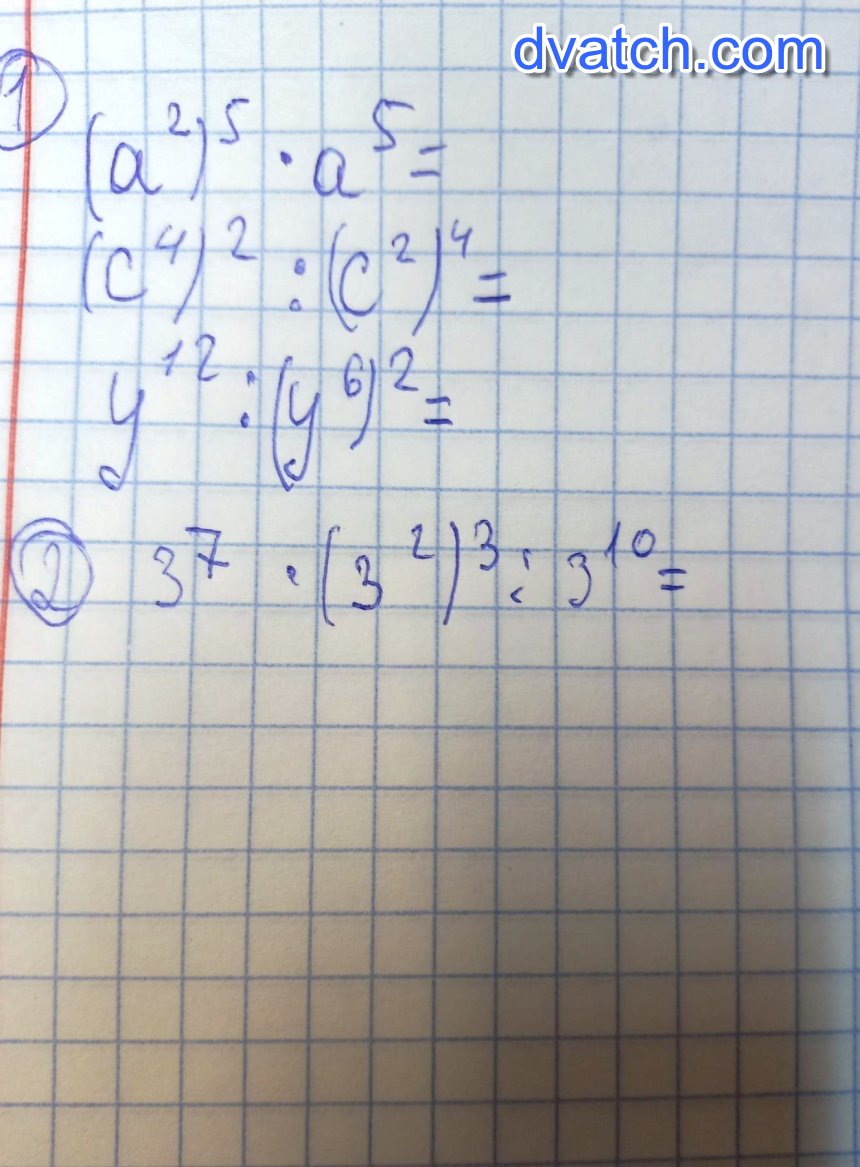 dvatch.com
1
(a²)⁵ · a⁵ =
(c⁴)² : (c²)⁴ =
y¹² : (y⁶)² =
2 3⁷ · (3²)³ : 3¹⁰ =